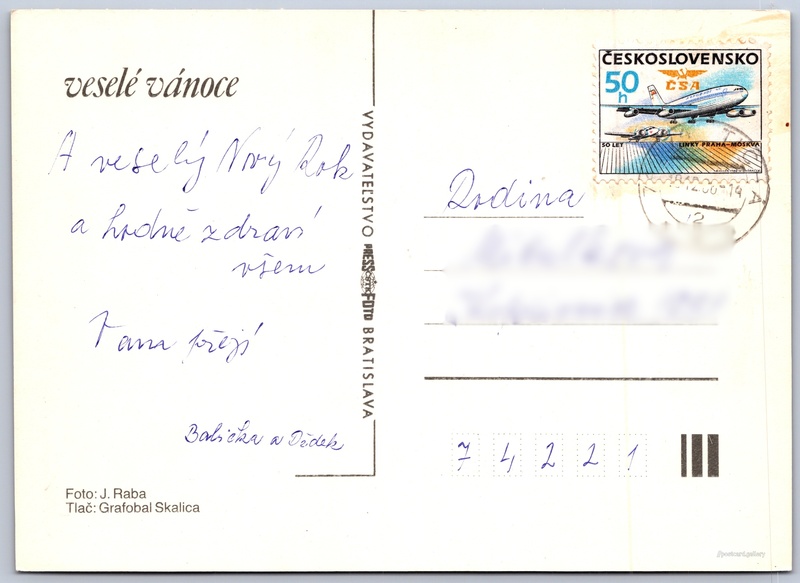 veselé vánoce
A veselý Nový Rok
a hodně zdraví
všem
Vám přejí
Babička a Dědek
Foto: J. Raba
Tlač: Grafobal Skalica
VYDAVATEĽSTVO PRESSFOTO BRATISLAVA
ČESKOSLOVENSKO
50
h
ČSA
50 LET LINKY PRAHA–MOSKVA
Rodina
7 4 2 2 1
//postcard.gallery